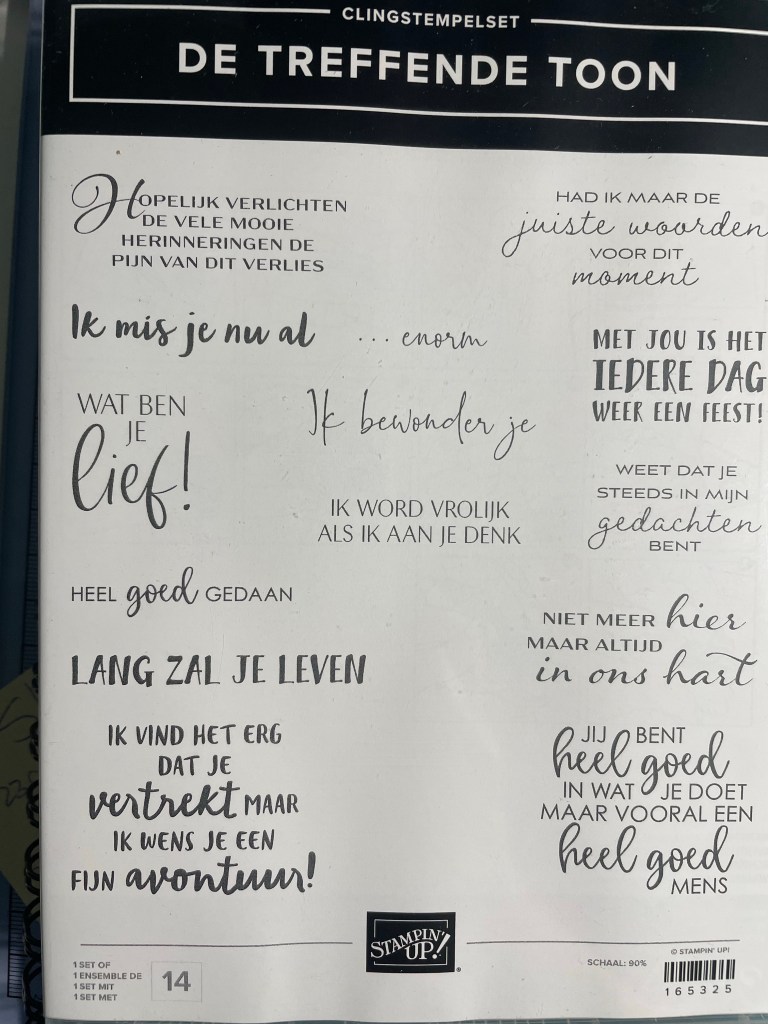 CLINGSTEMPELSET
DE TREFFENDE TOON
HOPELIJK VERLICHTEN
DE VELE MOOIE
HERINNERINGEN DE
PIJN VAN DIT VERLIES
HAD IK MAAR DE
juiste woorden
VOOR DIT
moment
Ik mis je nu al
... enorm
MET JOU IS HET
IEDERE DAG
WEER EEN FEEST!
WAT BEN
JE
lief!
Ik bewonder je
IK WORD VROLIJK
ALS IK AAN JE DENK
WEET DAT JE
STEEDS IN MIJN
gedachten
BENT
HEEL goed GEDAAN
NIET MEER hier
MAAR ALTIJD
in ons hart
LANG ZAL JE LEVEN
IK VIND HET ERG
DAT JE
vertrekt MAAR
IK WENS JE EEN
FIJN avontuur!
JIJ BENT
heel goed
IN WAT JE DOET
MAAR VOORAL EEN
heel goed
MENS
1 SET OF
1 ENSEMBLE DE
1 SET MIT
1 SET MET
14
STAMPIN'
UP!®
SCHAAL: 90%
© STAMPIN' UP!
165325